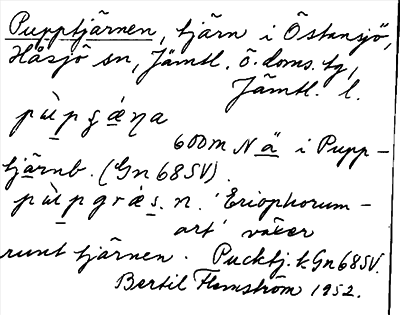 Pupptjärnen, tjärn i Östansjö,
Håsjö sn, Jämtl. ö. doms. tg,
Jämtl. l.
600 m N ä i Pupp-
tjärnb. (Gn 68 SV).
pu̇̀pgrás. n. 'Eriophorum-
art' växer
runt tjärnen. Pucktj. k. Gn 68 SV.
Bertil Flemström 1952.